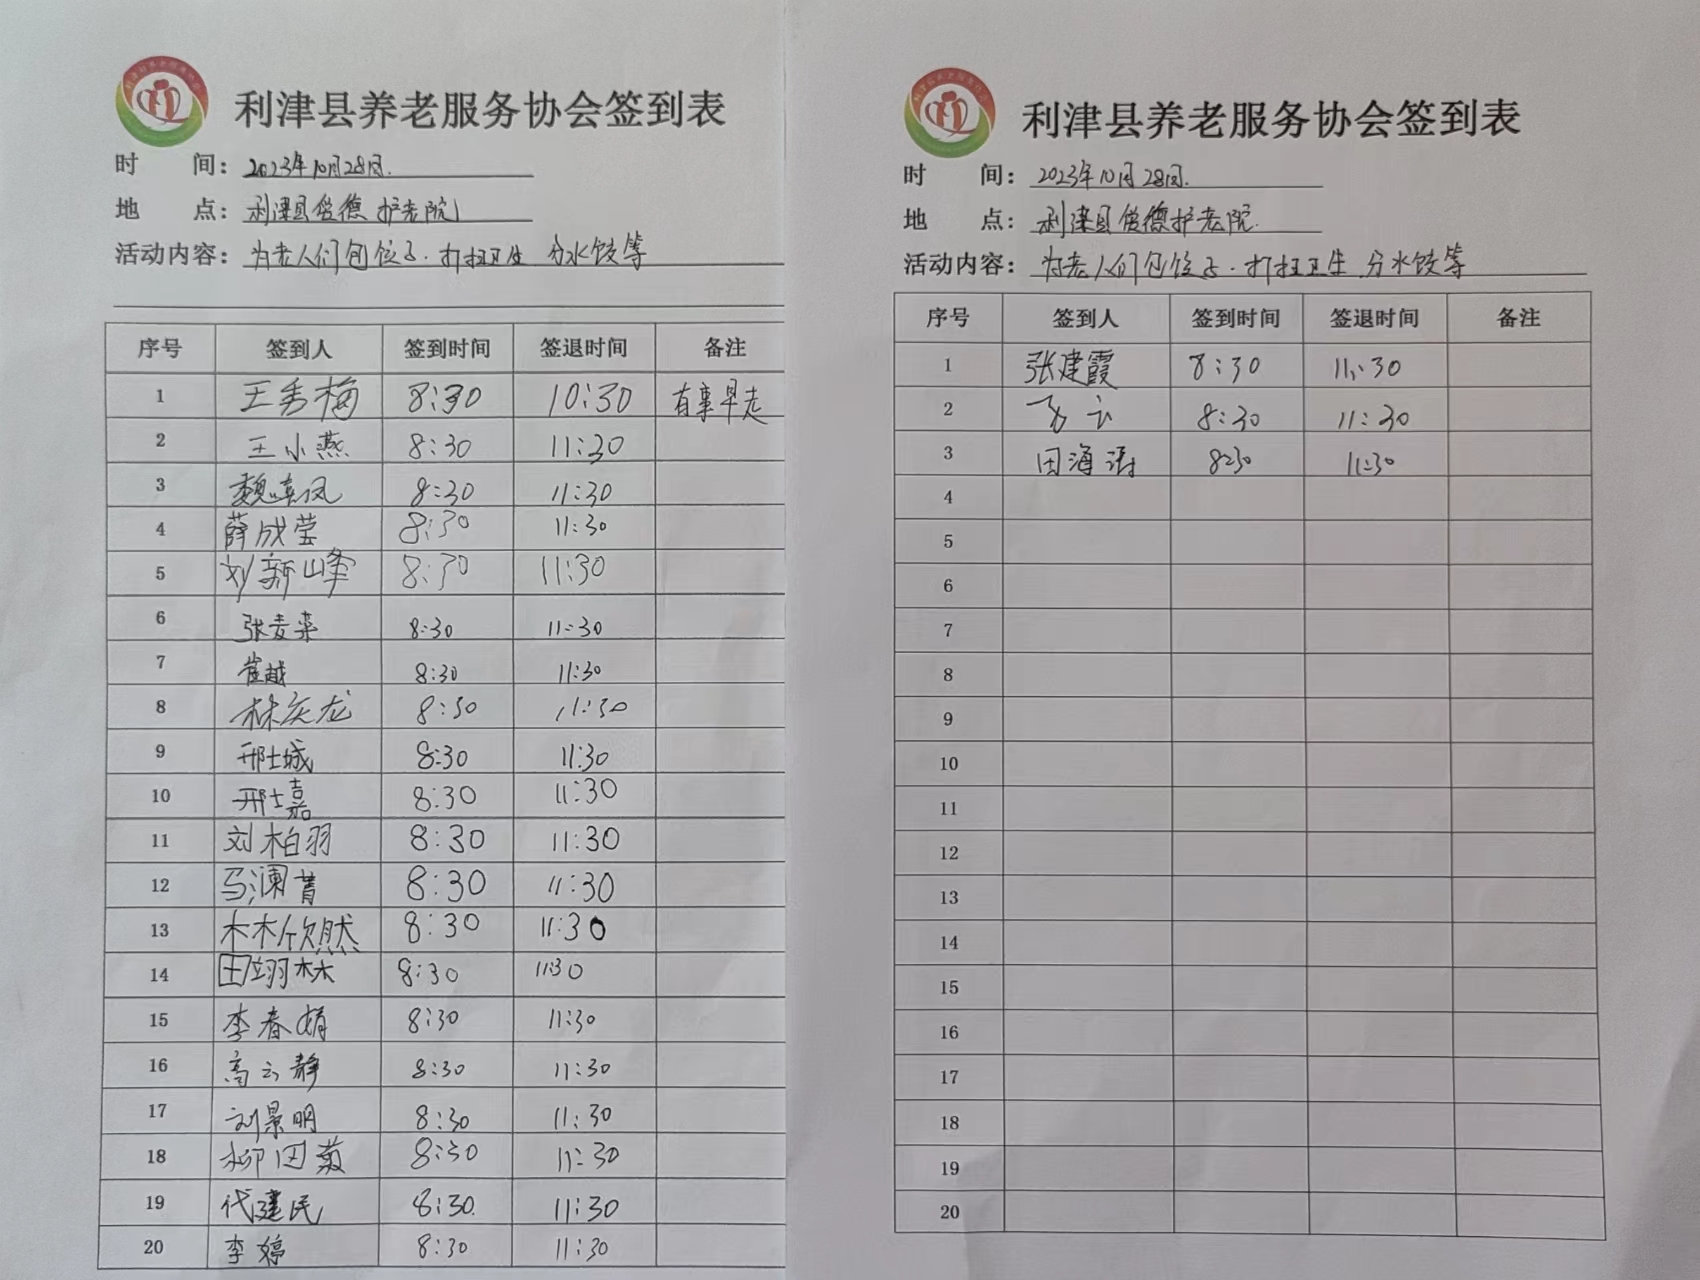 利津县养老服务协会签到表
时 间：2023年10月28日.
地 点：利津县俊德护老院
活动内容：为老人们包饺子.打扫卫生 分水饺等
序号 签到人 签到时间 签退时间 备注
1 王秀梅 8:30 10:30 有事早走
2 王小燕 8:30 11:30
3 8:30 11:30
4 薛成莹 8:30 11:30
5 刘新峰 8:30 11:30
6 8:30 11:30
7 崔越 8:30 11:30
8 林庆龙 8:30 11:30
9 邢士城 8:30 11:30
10 邢士嘉 8:30 11:30
11 刘柏羽 8:30 11:30
12 马澜菁 8:30 11:30
13 林欣然 8:30 11:30
14 田翊林 8:30 11:30
15 李春娟 8:30 11:30
16 高云静 8:30 11:30
17 刘景明 8:30 11:30
18 柳田菊 8:30 11:30
19 代建民 8:30. 11:30
20 李婷 8:30 11:30
利津县养老服务协会签到表
时 间：2023年10月28日.
地 点：利津县俊德护老院.
活动内容：为老人们包饺子.打扫卫生.分水饺等
序号 签到人 签到时间 签退时间 备注
1 张建霞 8:30 11:30
2 8:30 11:30
3 田海涛 8:30 11:30
4
5
6
7
8
9
10
11
12
13
14
15
16
17
18
19
20